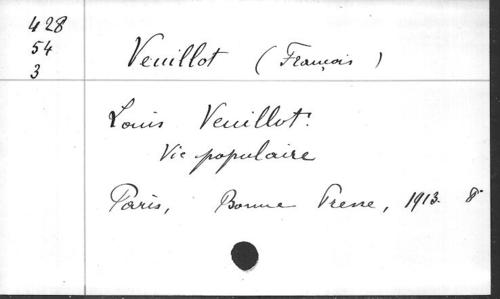 428
54
3
Veuillot (François)
Louis Veuillot.
Vie populaire
Paris, Bonne Presse, 1913. 8°